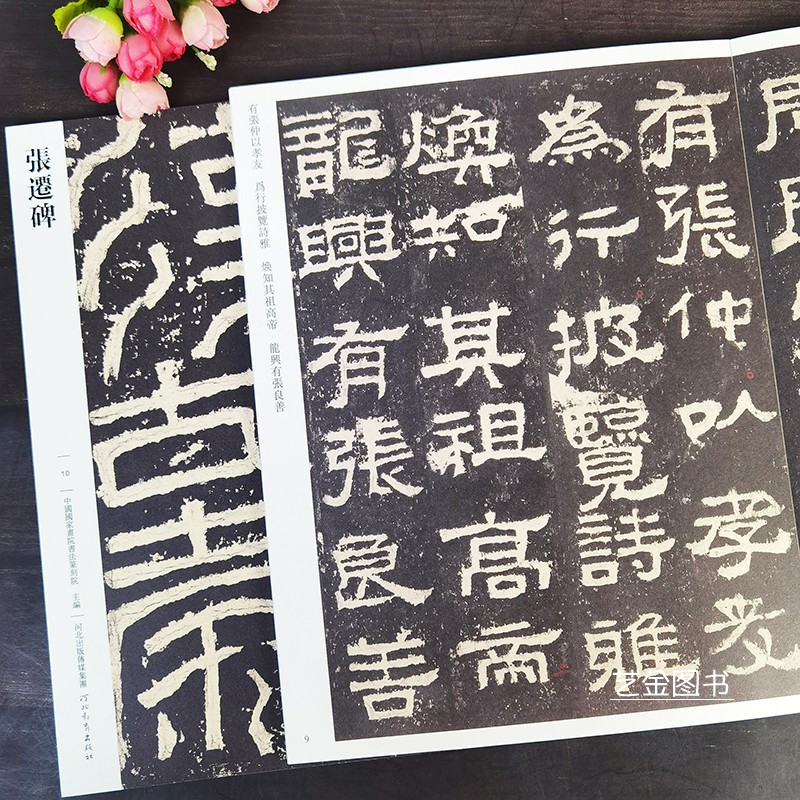 張遷碑
10
中國國家畫院書法篆刻院 主編
河北出版傳媒集團
河北教育出版社
有張仲以孝友
為行披覽詩雅
煥知其祖高帝
龍興有張良善
有張仲以孝友 爲行披覽詩雅 煥知其祖高帝 龍興有張良善
9
艺金图书